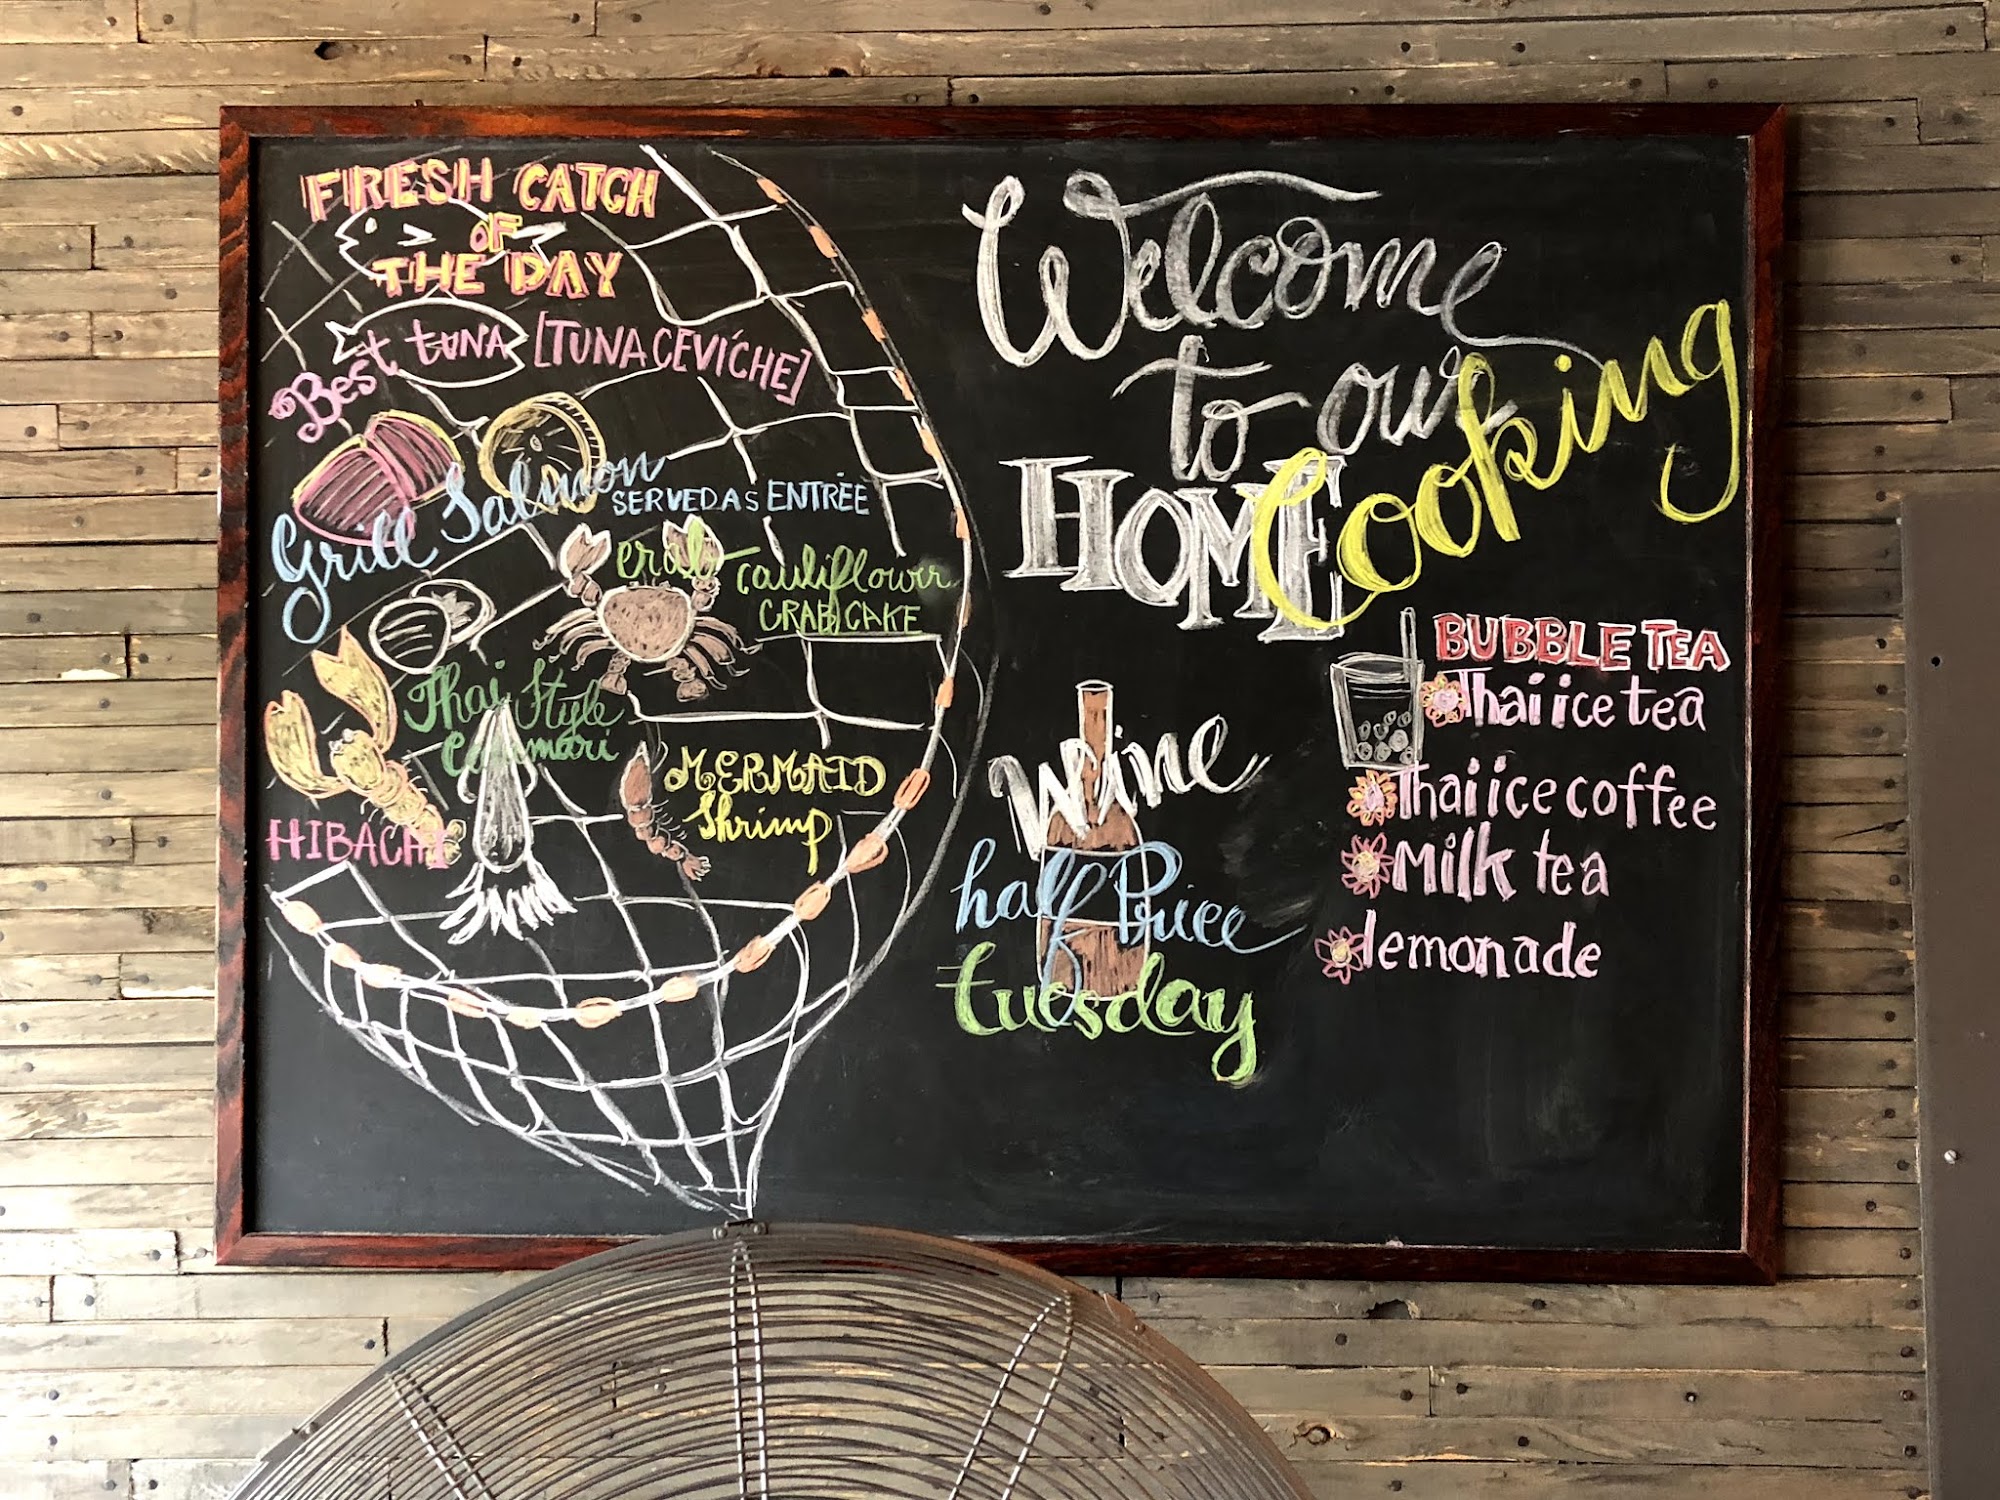 FRESH CATCH
OF
THE DAY
Best tuna [TUNA CEVICHE]
Grill Salmon SERVED AS ENTRÉE
crab cauliflower
CRAB CAKE
Thai Style
Calamari
MERMAID
Shrimp
HIBACHI
Welcome
to our
HOME Cooking
BUBBLE TEA
Thai ice tea
Thai ice coffee
Milk tea
lemonade
Wine
half Price
tuesday